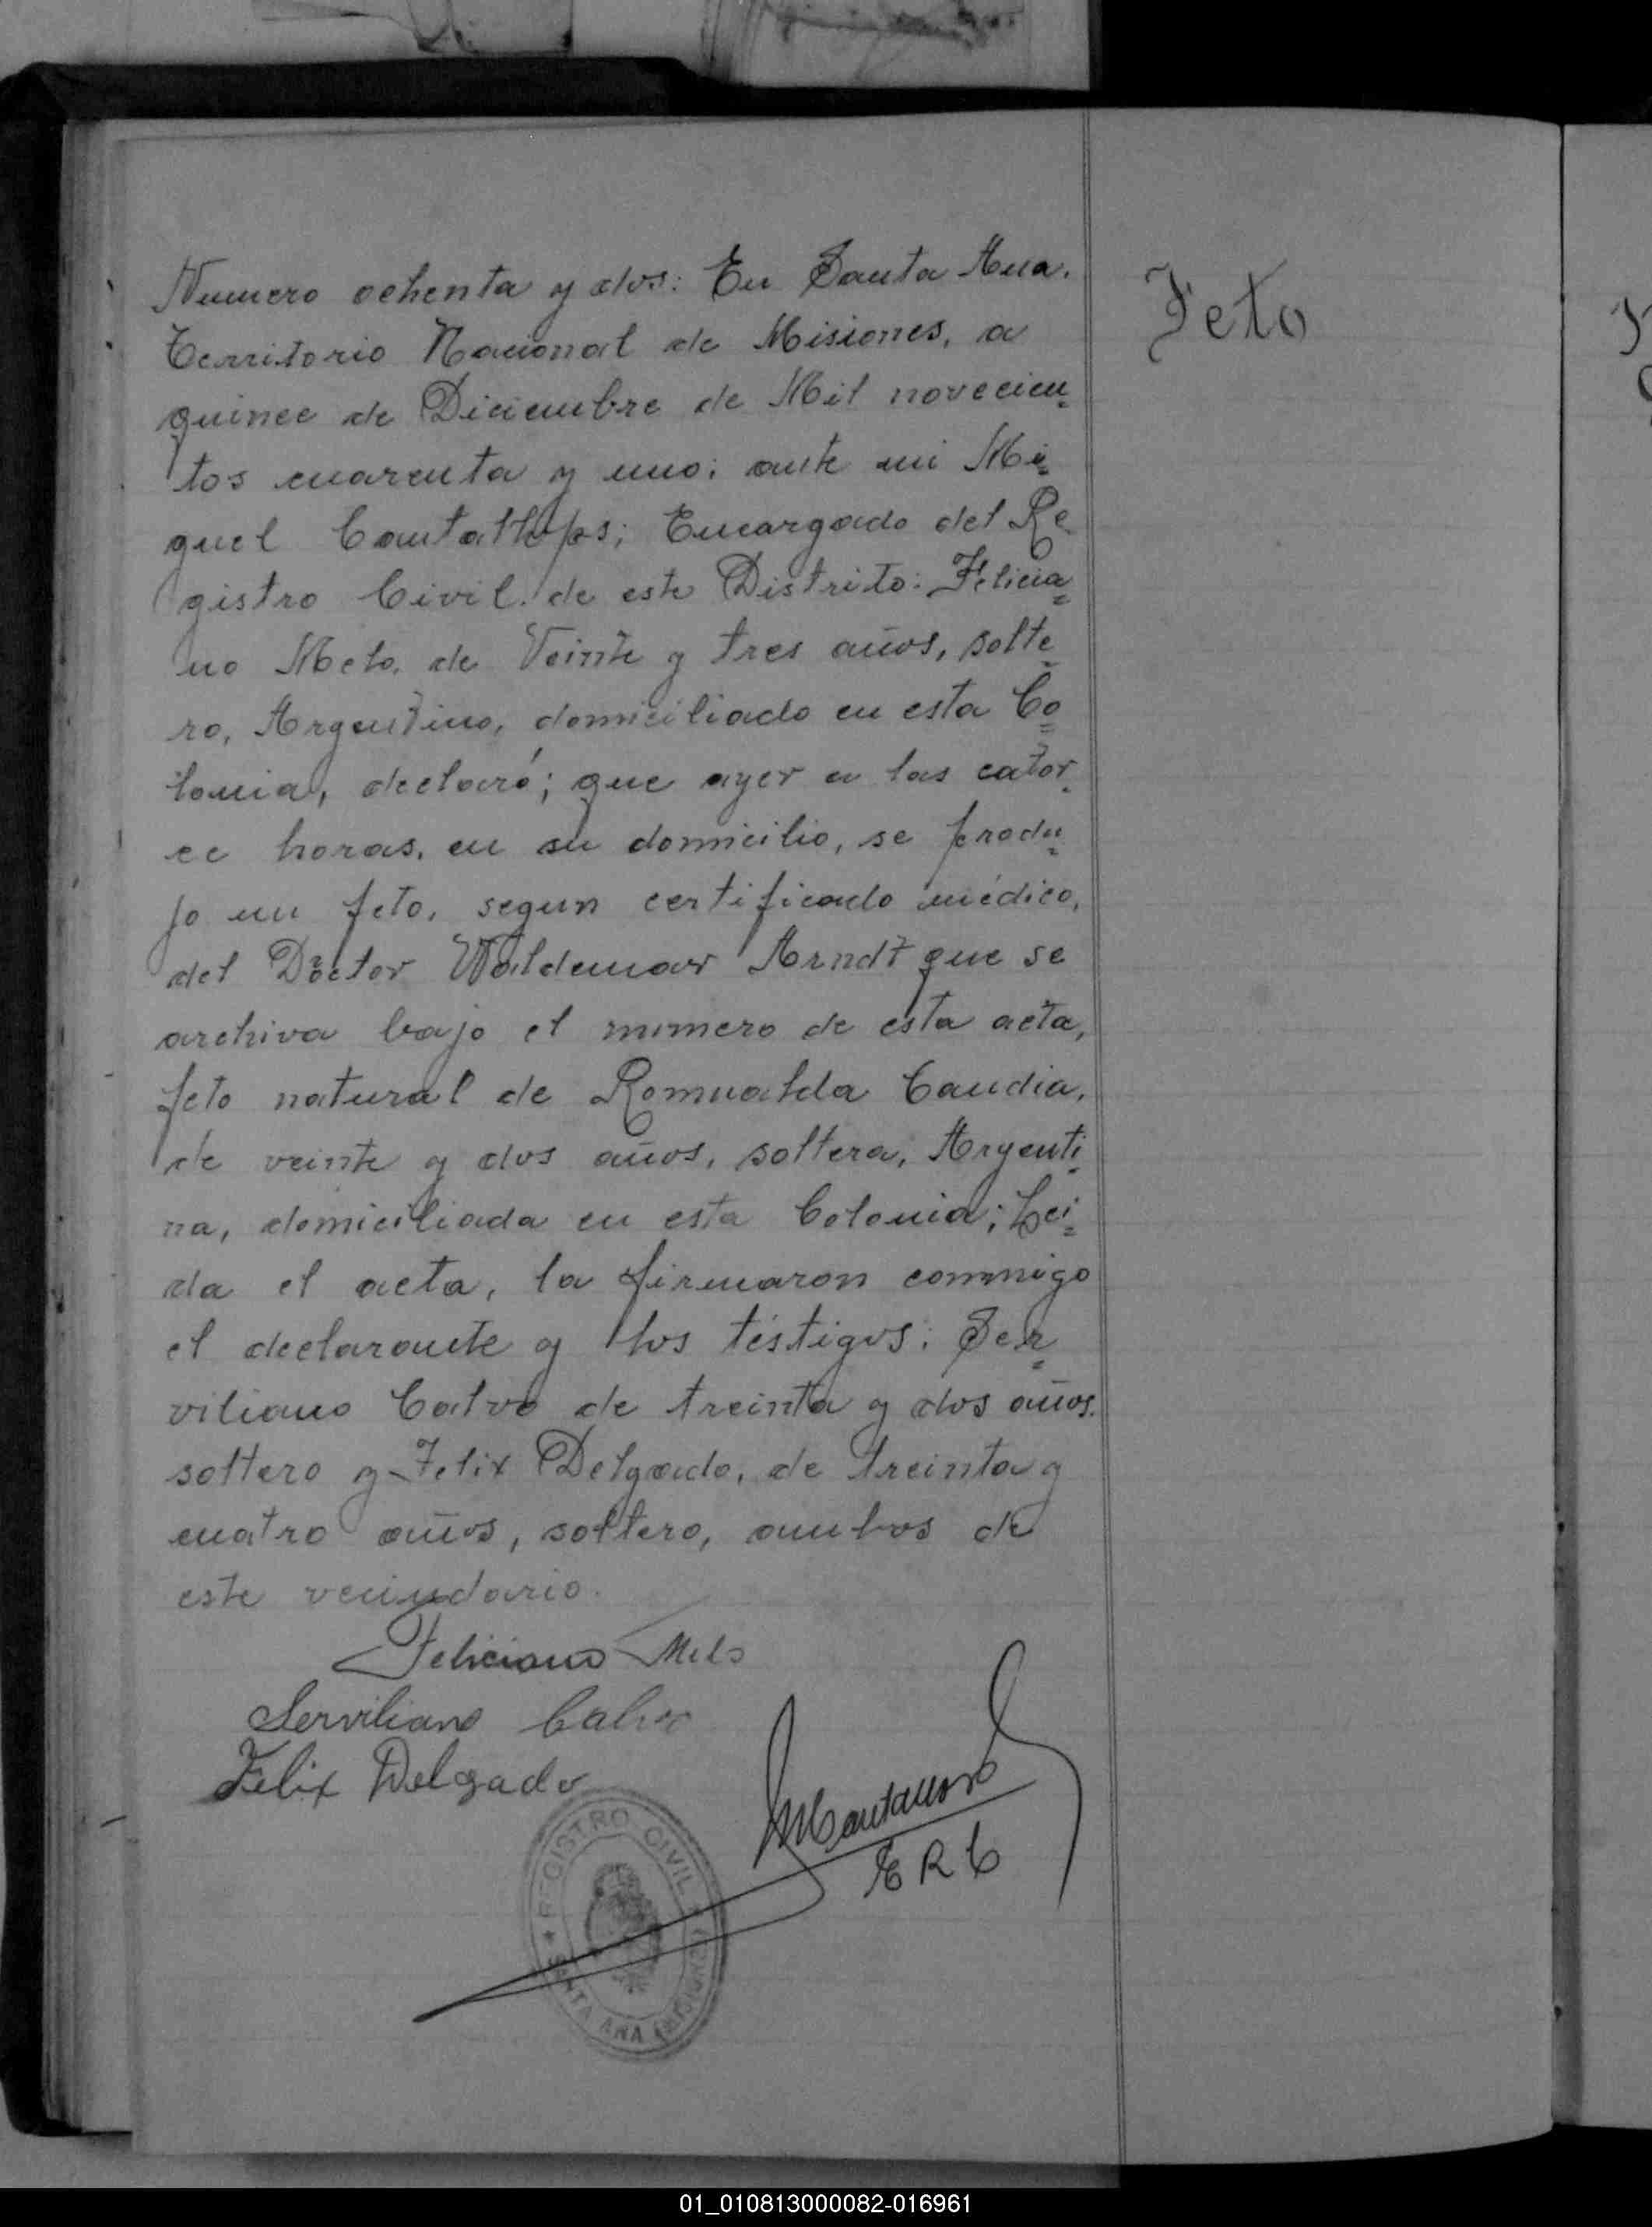 Numero ochenta y dos: En Santa Ana.
Territorio Nacional de Misiones, a
quince de Diciembre de Mil novecien=
tos cuarenta y uno: ante mi Mi=
guel Cantallops; Encargado del Re
gistro Civil de este Distrito: Felicia=
no Melo, de Veinte y tres años, solte=
ro, Argentino, domiciliado en esta Co=
lonia, declaró; que ayer a las cator=
ce horas, en su domicilio, se produ=
jo un feto, segun certificado médico,
del Doctor Waldemar Arndt que se
archiva bajo el numero de esta acta,
feto natural de Romualda Candia,
de veinte y dos años, soltera, Argenti=
na, domiciliada en esta Colonia; Lei=
da el acta, la firmaron conmigo
el declarante y los téstigos: Ser=
viliano Calvo de treinta y dos años.
soltero y Felix Delgado, de treinta y
cuatro años, soltero, ambos de
este vecindario.
Feliciano Melo
Serviliano Calvo
Felix Delgado
MCantallops
E R C
REGISTRO CIVIL
SANTA ANA (MISIONES)
Feto
01_010813000082-016961